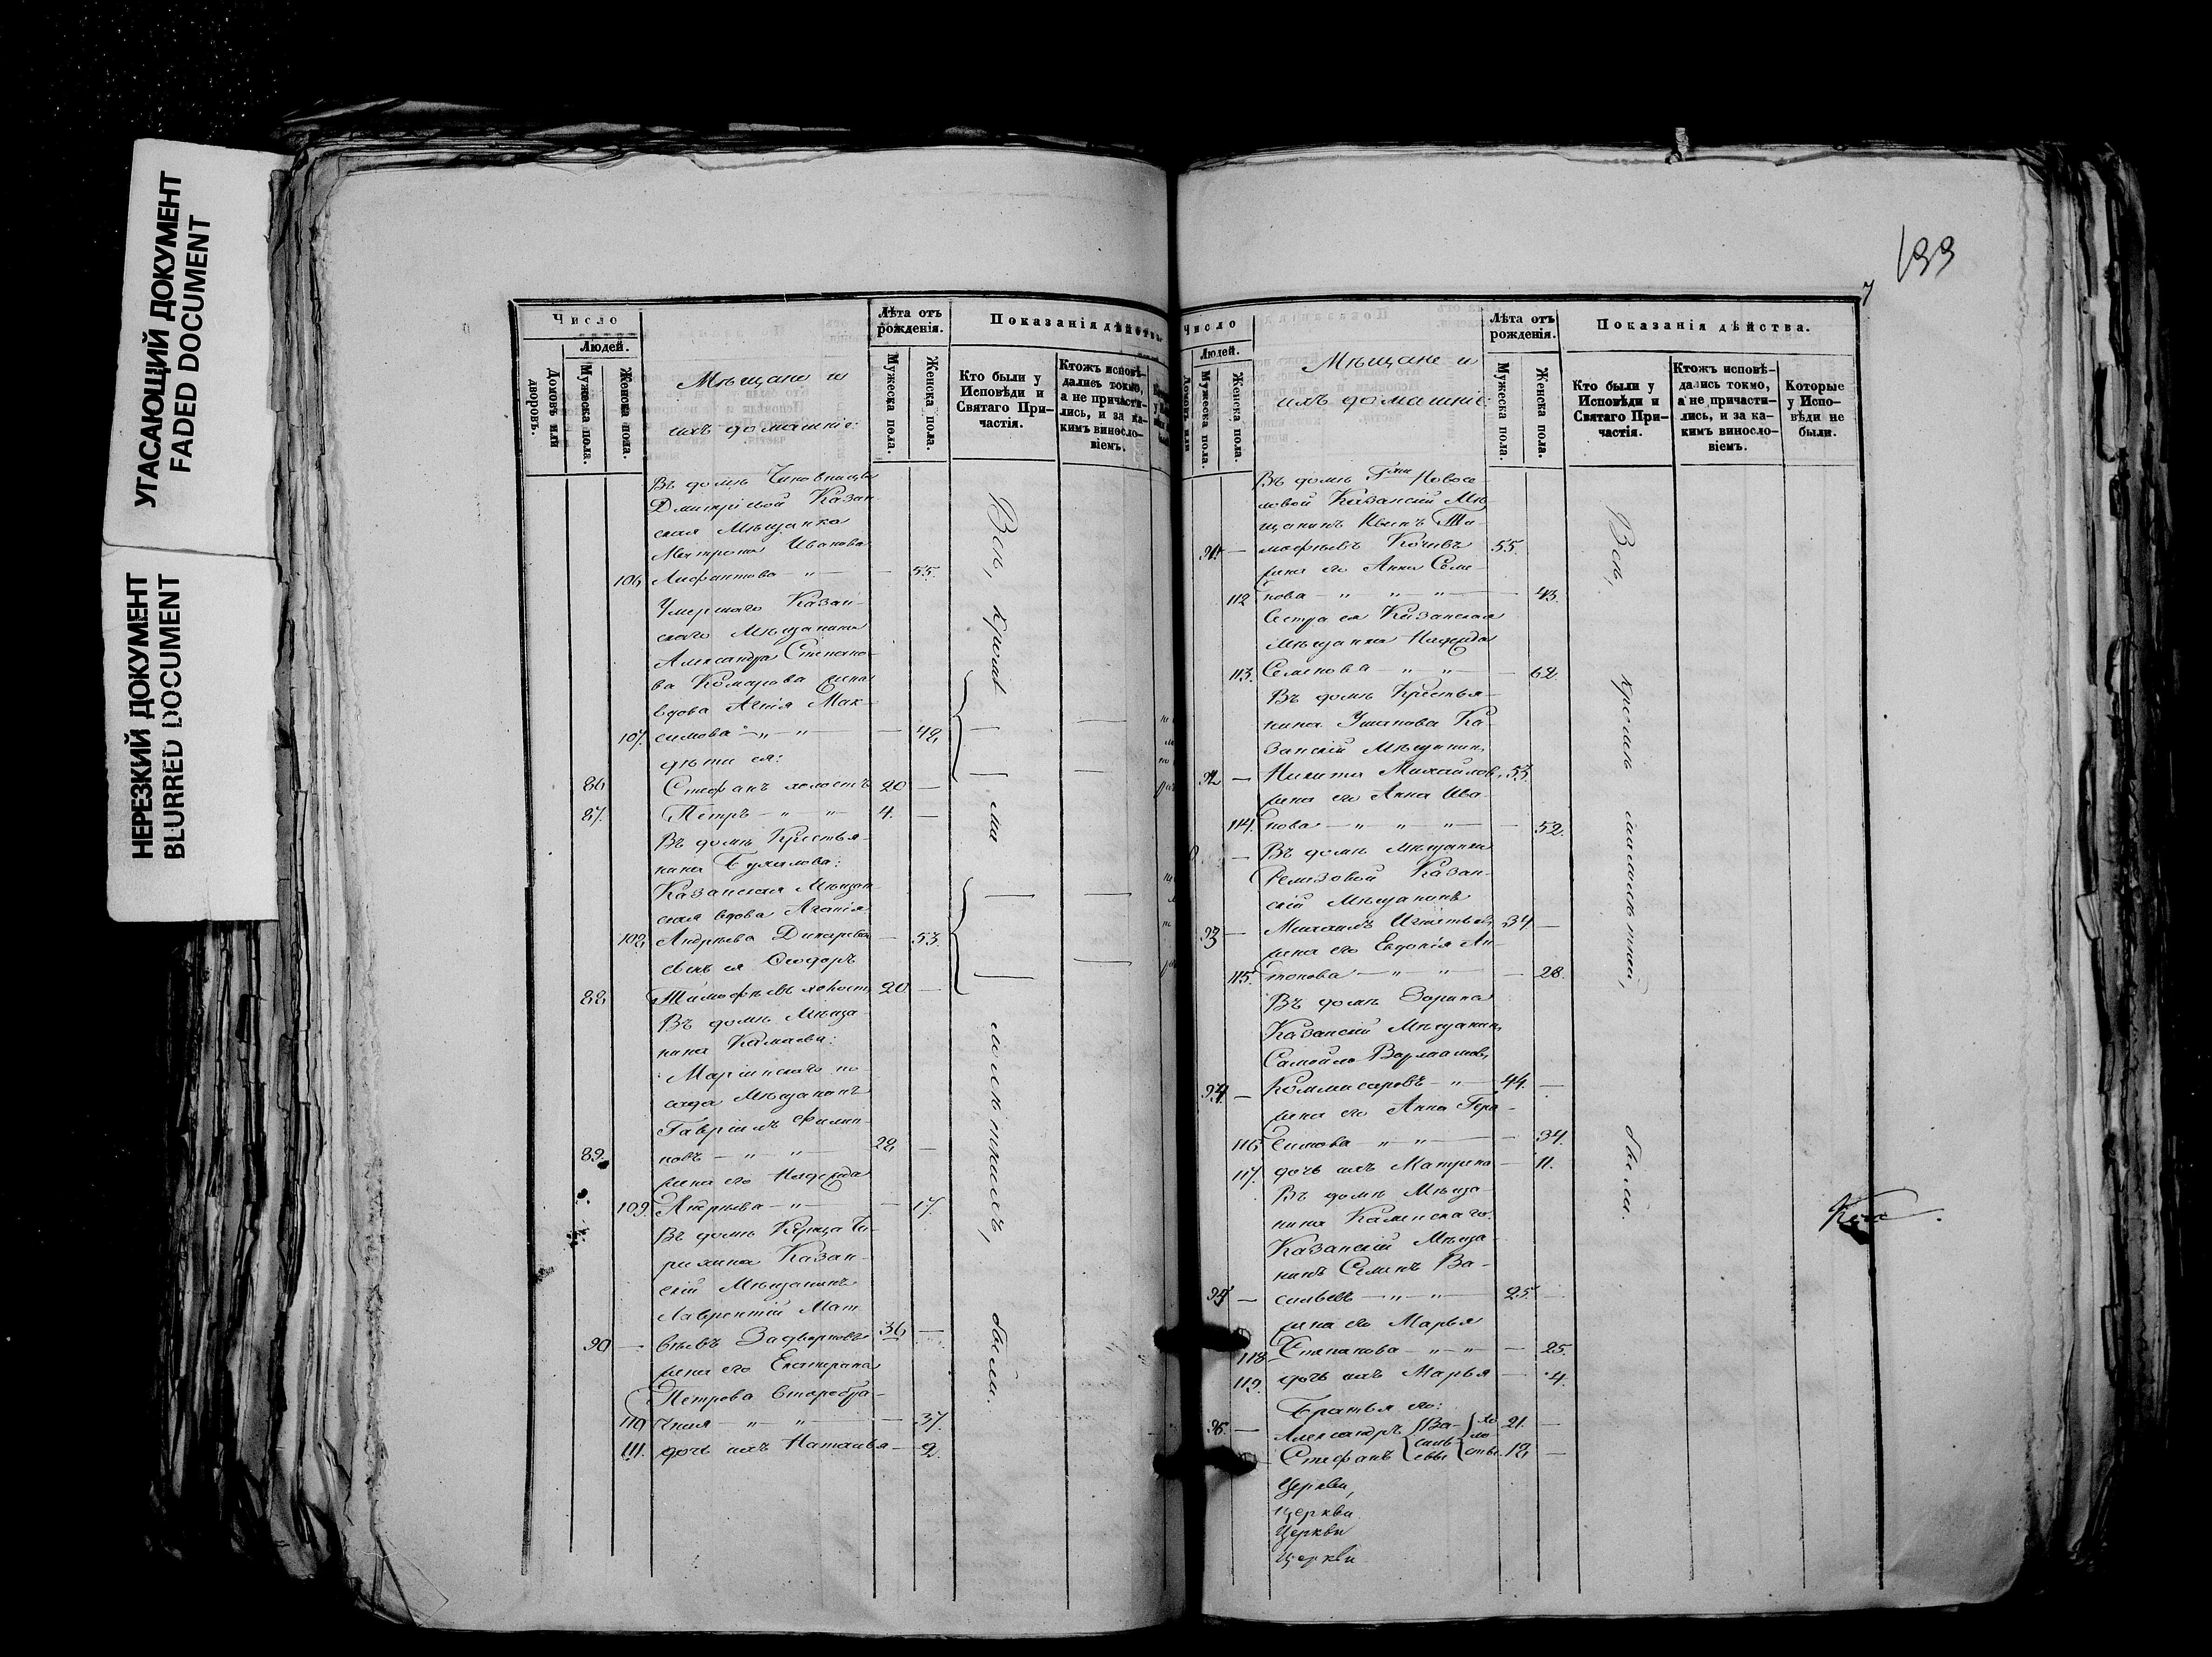 УГАСАЮЩИЙ ДОКУМЕНТ
FADED DOCUMENT
НЕРЕЗКИЙ ДОКУМЕНТ
BLURRED DOCUMENT
Число
Людей.
Домовъ или дворовъ.
Мужеска пола.
Женска пола.
Мѣщане и
ихъ домашніе:
Лѣта отъ рожденія.
Мужеска пола.
Женска пола.
Показанія дѣйства
Кто были у Исповѣди и Святаго Причастія.
Ктожъ исповѣдались токмо, а не причастились, и за какимъ винословіемъ.
Въ домѣ Чиновницы
Дмитріевой Казан-
ская Мѣщанка
Матрона Иванова
106 — " — 55.
Умершаго Казан-
скаго Мѣщанина
Александра Степано-
ва Комарова жена
вдова Агнія Мак-
107. симова — " — " — 48
дѣти ея:
86 Стефанъ холостъ 20 —
87. Петръ — " — " 4. —
Въ домѣ Крестья-
нина
Казанская Мѣщан
ская вдова Агапія
108 Андреева — 53.
сынъ ея Ѳеодоръ
88 Тимофѣевъ холостъ 20 —
Въ домѣ Мѣща-
нина Камаева:
Маріинскаго по-
сада Мѣщанинъ
Гавріилъ Филип-
89. повъ — " — " — 28 —
жена его Надежда
109. Андреева — " — 17.
Въ домѣ Купца
Казан-
скій Мѣщанинъ
Лаврентій Мат-
90 — вѣевъ Задворновъ 36 —
жена его Екатерина
Петрова Старобра-
110 чная — " — " — 37.
111. дочь ихъ Наталья — 2.
Всѣ, кромѣ
были.
133
7
Число
Людей.
Домовъ или
Мужеска пола.
Женска пола.
Мѣщане и
ихъ домашніе:
Лѣта отъ рожденія.
Мужеска пола.
Женска пола.
Показанія дѣйства.
Кто были у Исповѣди и Святаго Причастія.
Ктожъ исповѣдались токмо, а не причастились, и за какимъ винословіемъ.
Которые у Исповѣди не были.
Въ домѣ Г-жи Новосе-
ловой Казанскій Мѣ-
щанинъ Иванъ Ти-
91. — мофѣевъ 55.
жена его Анна Семе-
112 нова — " — " — " — 43.
Сестра ея Казанская
Мѣщанка Надежда
113. Семенова — " — " — 62.
Въ домѣ Крестья-
нина Ушакова Ка-
занскій Мѣщанинъ
92 — Никита Михайловъ 53.
жена его Анна Ива-
114. нова — " — " — " — 52.
— Въ домѣ Мѣщанки
Ремизовой Казан-
скій Мѣщанинъ
93 — Михаилъ Игнатьевъ 34 —
жена его Евдокія Ан-
115. тонова — " — " — 28.
Въ домѣ Зорина
Казанскій Мѣщанинъ
Самойло Варлаамовъ
94 — Коммисаровъ — " — 44. —
жена его Анна Гера-
116 симова — " — " — 34.
117. дочь ихъ Матрена — 11.
Въ домѣ Мѣща-
нина Каменскаго:
Казанскій Мѣща-
нинъ Семенъ Ва-
95 — сильевъ — " — " — 25. —
жена его Марья
118. Степанова — " — " — 25.
119. дочь ихъ Марья — 4.
Братья его:
96. — Александръ Ва- хо 21. —
Стефанъ силь- евы ло- сты 18 —
Церкви,
Церкви
Церкви
Церкви
Всѣ, кромѣ малолѣтней, были.